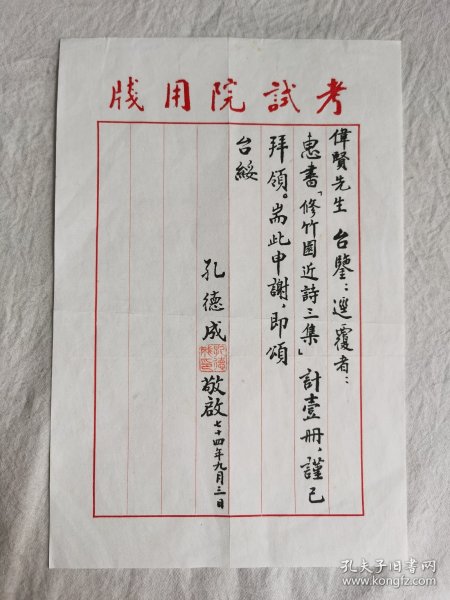 考試院用牋
偉賢先生 台鑒:逕覆者:
惠書「修竹園近詩三集」計壹冊,謹已
拜領。耑此申謝,即頌
台綏
孔德成
敬啟七十四年九月三日
孔夫子旧书网
www.kongfz.com